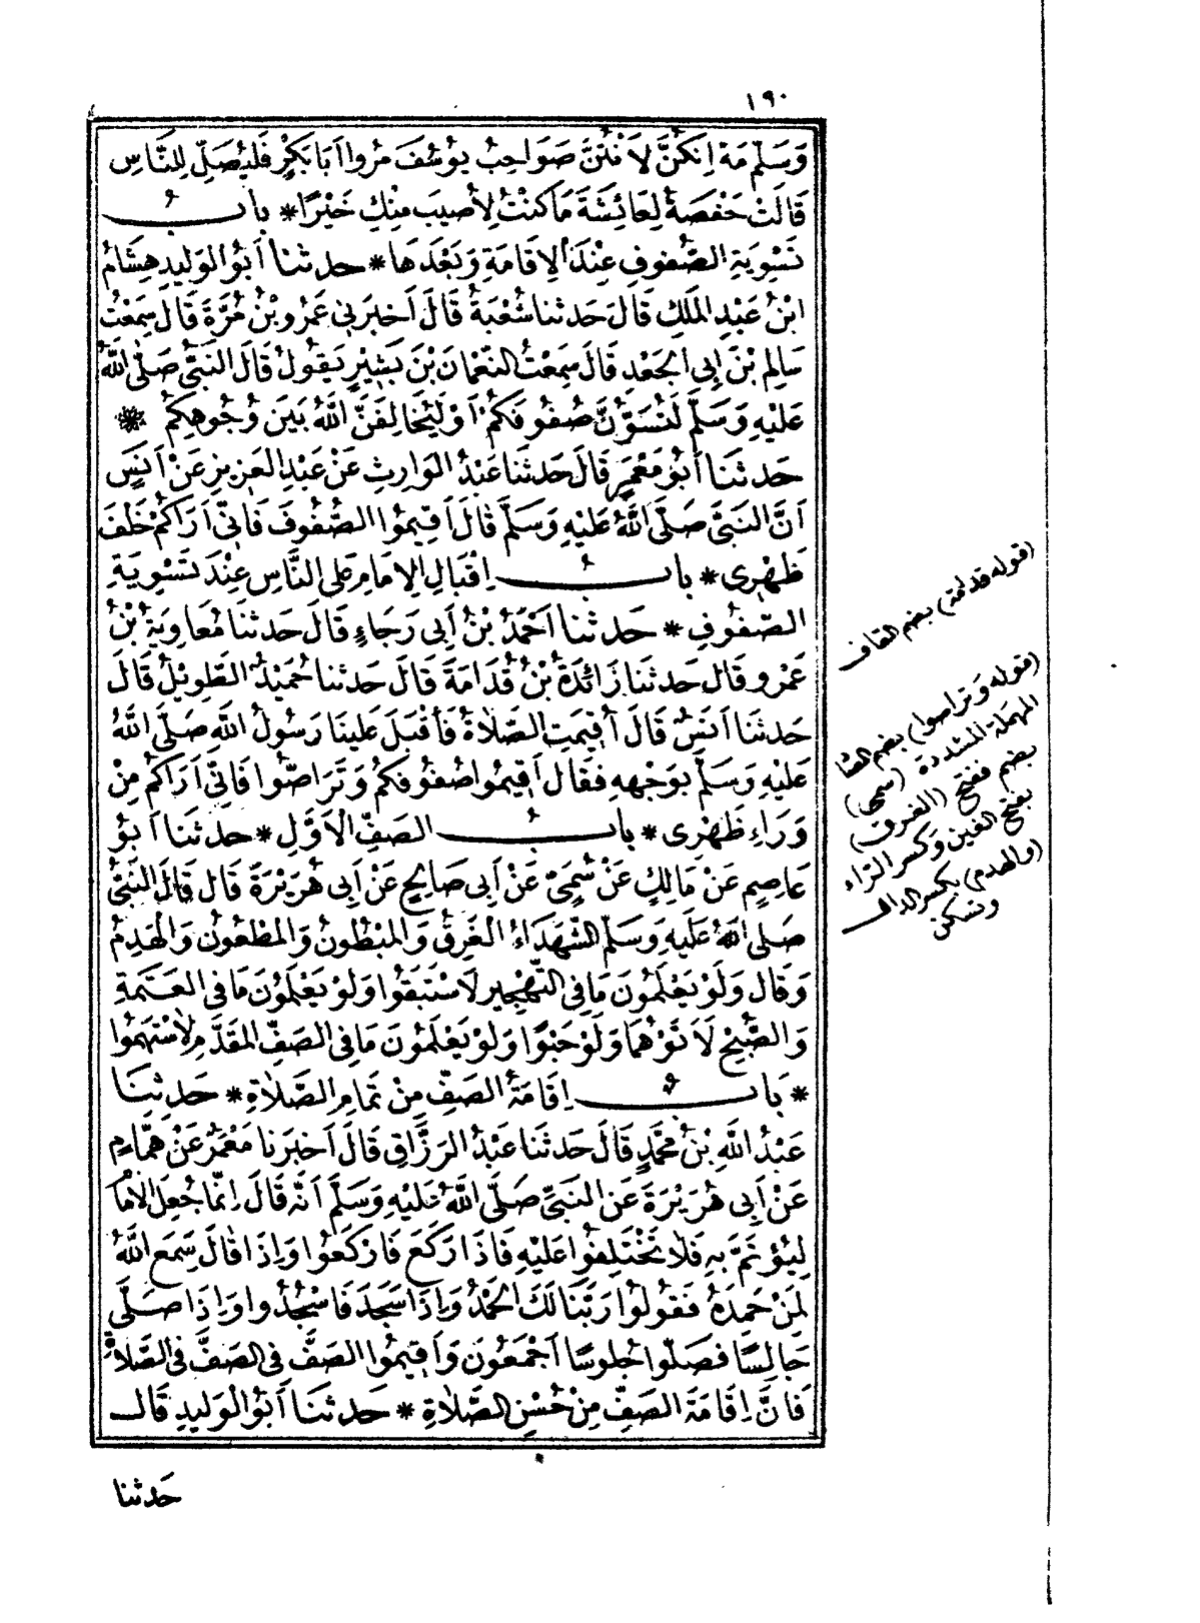 ١٩٠
وَسَلَّمَ مَهْ اِنَّكُنَّ لَاَنْتُنَّ صَوَاحِبُ يُوسُفَ مُرُوا اَبَا بَكْرٍ فَليُصَلِّ لِلنَّاسِ
قَالَتْ حَفْصَةُ لِعَائِشَةَ مَا كُنْتُ لِأُصِيبَ مِنْكِ خَيْرًا * بابُ
تَسْوِيَةِ الصُّفُوفِ عِنْدَ الْاِقَامَةِ وَبَعْدَهَا * حدثنا أَبُو الوَلِيدِ هِشَامُ
ابْنُ عَبْدِ المَلِكِ قَالَ حَدثنا شُعْبَةُ قَالَ اَخبَرَنِى عَمْرُو بْنُ مُرَّةَ قَالَ سَمِعْتُ
سَالِمَ بْنَ اَبِى الجَعْدِ قَالَ سَمِعْتُ النُّعْمَانَ بْنَ بَشِيْرٍ يَقُولُ قَالَ النَّبِىُّ صَلَّى اللَّهُ
عَلَيْهِ وَسَلَّمَ لَتُسَوُّنَّ صُفُوفَكُمْ اَوْ لَيُخَالِفَنَّ اللَّهُ بَيْنَ وُجُوهِكُمْ *
حَدثَنَا اَبُو مَعْمَرٍ قَالَ حَدثَنَا عَبْدُ الوَارِثِ عَنْ عَبْدِ العَزِيزِ عَنْ اَنَسٍ
اَنَّ النَّبِىَّ صَلَّى اللَّهُ عَلَيْهِ وَسَلَّمَ قَالَ اَقِيمُوا الصُّفُوفَ فَاِنِّى اَرَاكُمْ خَلْفَ
ظَهْرِى * بابُ اِقْبَالِ الاِمَامِ عَلَى النَّاسِ عِنْدَ تَسْوِيَةِ
الصُّفُوفِ * حَدثنا اَحْمَدُ بْنُ اَبِى رَجَاءٍ قَالَ حَدثنَا مُعَاوِيَةُ بْنُ
عَمْرٍو قَالَ حَدثنَا زَائدَةُ بْنُ قُدَامَةَ قَالَ حَدثنا حُمَيْدٌ الطَّوِيْلُ قَالَ
حَدثنَا اَنَسٌ قَالَ اُقِيمَتِ الصَّلَاةُ فَأَقْبَلَ عَلَينَا رَسُولُ اللَّهِ صَلَّى اللَّهُ
عَلَيْهِ وَسَلَّمَ بِوَجْهِهِ فَقَالَ اَقِيمُوا صُفُوفَكُمْ وَتَرَاصُّوا فَاِنِّى اَرَاكُمْ مِنْ
وَرَاءِ ظَهْرِى * بابُ الصَفِّ الاَوَّلِ * حدثنَا اَبُو
عَاصِمٍ عَنْ مَالِكٍ عَنْ سُمَىٍّ عَنْ اَبِى صَالِحٍ عَنْ اَبِى هُرَيْرَةَ قَالَ قَالَ النَّبِىُّ
صَلى اللهُ عَلَيهِ وَسَلَّمَ الشُّهَدَاءُ الغَرِقُ وَالمَبْطُونُ وَالمَطْعُونُ وَالهَدِمُ
وَقَالَ وَلَوْ يَعْلَمُونَ مَا فِى التَّهْجِيرِ لَاسْتَبَقُوا وَلَوْ يَعْلَمُوْنَ مَا فِى العَتَمَةِ
وَالصُّبْحِ لَاَتَوْهُمَا وَلَوْ حَبْوًا وَلَوْ يَعْلَمُونَ مَا فِى الصَفِّ المُقَدَّمِ لَاسْتَهَمُوا
* بَابُ اِقَامَةِ الصَفِّ مِنْ تَمَامِ الصَّلَاةِ * حَدثنَا
عَبْدُ اللَّهِ بْنُ مُحَمَّدٍ قَالَ حَدثنَا عَبْدُ الرَزَّاقِ قَالَ اَخبَرَنا مَعْمَرٌ عَنْ هَمَّامٍ
عَنْ اَبِى هُرَيْرَةَ عَنِ النَبِىِّ صَلَّى اللَّهُ عَلَيْهِ وَسَلَّمَ اَنَّهُ قَالَ اِنَّمَا جُعِلَ الاِمَامُ
لِيُؤْتَمَّ بِهِ فَلَا تَخْتَلِفُوا عَلَيْهِ فَاذَا رَكَعَ فَارْكَعُوا وَاِذَا قَالَ سَمِعَ اللَّهُ
لِمَنْ حَمِدَهُ فَقُولُوا رَبَّنَا لَكَ الحَمْدُ وَاِذَا سَجَدَ فَاسْجُدُوا وَاِذَا صَلَّى
جَالِسًا فَصَلُّوا جُلُوسًا اَجْمَعُونَ وَاَقِيمُوا الصَفَّ فِى الصَفِّ فى الصَّلاةِ
فَاِنَّ اِقَامَةَ الصَفِّ مِنْ حُسْنِ الصَّلَاةِ * حَدثنَا اَبُو الْوَلِيدِ قَالَ
حَدثنا
(قوله قدامة) بضم القاف
(قوله وتراصوا) بضم الصاد
المهملة المشددة (سمى)
بضم ففتح (الغرق)
بفتح الغين وكسر الراء
(والهدم) بكسر الدال
وتسكن